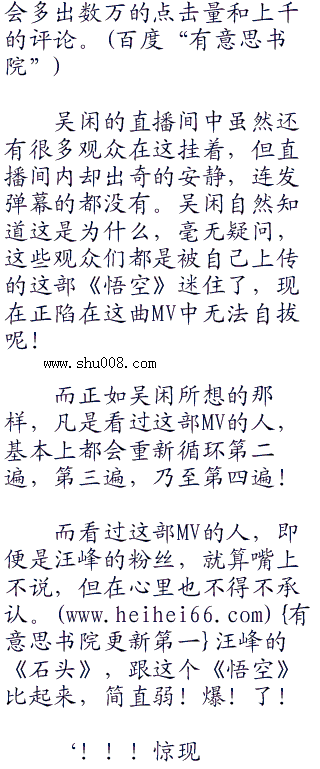 会多出数万的点击量和上千
的评论。(百度“有意思书
院”)
吴闲的直播间中虽然还
有很多观众在这挂着，但直
播间内却出奇的安静，连发
弹幕的都没有。吴闲自然知
道这是为什么，毫无疑问，
这些观众们都是被自己上传
的这部《悟空》迷住了，现
在正陷在这曲MV中无法自拔
呢！
www.shu008.com
而正如吴闲所想的那
样，凡是看过这部MV的人，
基本上都会重新循环第二
遍，第三遍，乃至第四遍！
而看过这部MV的人，即
便是汪峰的粉丝，就算嘴上
不说，但在心里也不得不承
认。(www.heihei66.com){有
意思书院更新第一}汪峰的
《石头》，跟这个《悟空》
比起来，简直弱！爆！了！
‘！！！惊现